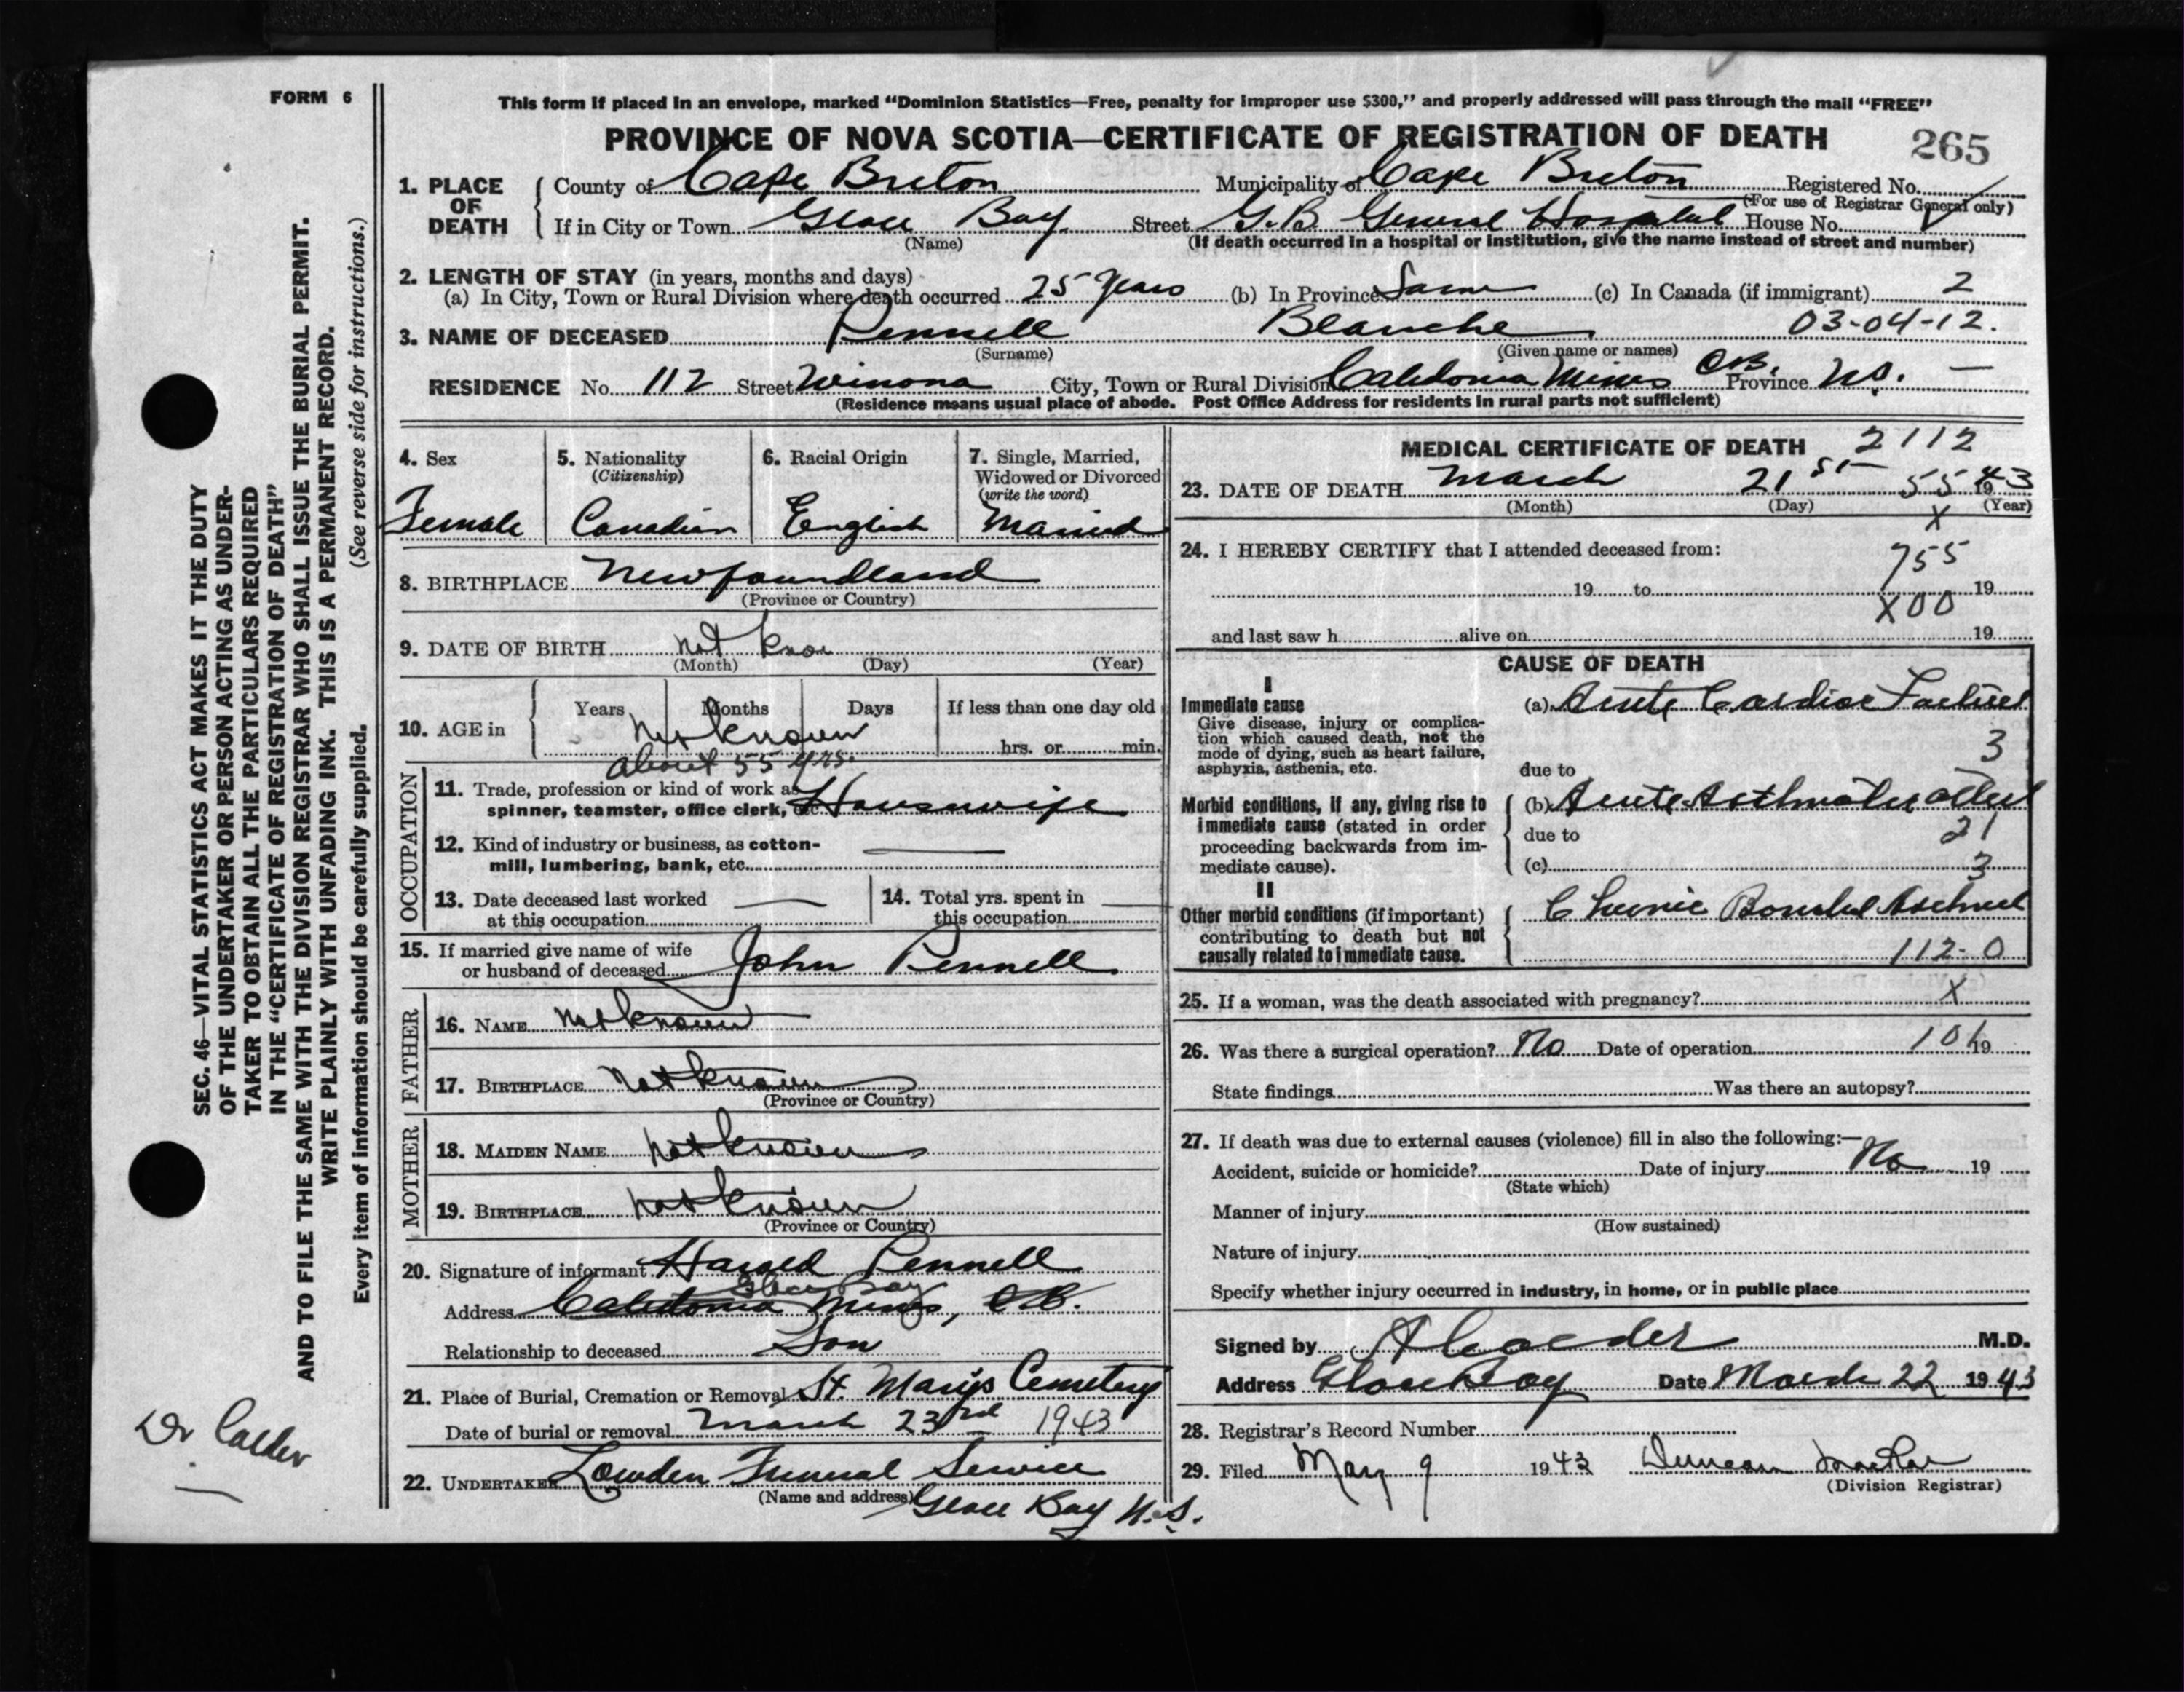 FORM 6
This form if placed in an envelope, marked "Dominion Statistics—Free, penalty for improper use $300," and properly addressed will pass through the mail "FREE"
PROVINCE OF NOVA SCOTIA—CERTIFICATE OF REGISTRATION OF DEATH
265
1. PLACE OF DEATH
County of Cape Breton Municipality of Cape Breton Registered No.
(For use of Registrar General only)
If in City or Town Glace Bay Street G.B. General Hospital House No.
(Name) (If death occurred in a hospital or institution, give the name instead of street and number)
2. LENGTH OF STAY (in years, months and days)
(a) In City, Town or Rural Division where death occurred 25 years (b) In Province Same (c) In Canada (if immigrant) 2
3. NAME OF DECEASED Pennell Blanche 03-04-12.
(Surname) (Given name or names)
RESIDENCE No. 112 Street Winona City, Town or Rural Division Caledonia Mines C.B. Province N.S. —
(Residence means usual place of abode. Post Office Address for residents in rural parts not sufficient)
4. Sex
Female
5. Nationality
(Citizenship)
Canadian
6. Racial Origin
English
7. Single, Married,
Widowed or Divorced
(write the word)
Married
8. BIRTHPLACE Newfoundland
(Province or Country)
9. DATE OF BIRTH not know
(Month) (Day) (Year)
10. AGE in Years Months Days If less than one day old
Not known
hrs. or min.
about 55 yrs.
OCCUPATION
11. Trade, profession or kind of work as
spinner, teamster, office clerk, etc. Housewife
12. Kind of industry or business, as cotton-
mill, lumbering, bank, etc. —
13. Date deceased last worked
at this occupation —
14. Total yrs. spent in
this occupation —
15. If married give name of wife
or husband of deceased John Pennell
FATHER
16. NAME Not known
17. BIRTHPLACE Not known
(Province or Country)
MOTHER
18. MAIDEN NAME not known
19. BIRTHPLACE not known
(Province or Country)
20. Signature of informant Harold Pennell
Glace Bay
Address Caledonia Mines, C.B.
Relationship to deceased Son
21. Place of Burial, Cremation or Removal St. Marys Cemetery
Date of burial or removal March 23rd 1943
22. UNDERTAKER Lowden Funeral Service
(Name and address) Glace Bay N.S.
MEDICAL CERTIFICATE OF DEATH 2112
23. DATE OF DEATH March 21st 55 1943
(Month) (Day) (Year)
X
24. I HEREBY CERTIFY that I attended deceased from:
755
19 to 19
X00
and last saw h alive on 19
CAUSE OF DEATH
I
Immediate cause
Give disease, injury or complica-
tion which caused death, not the
mode of dying, such as heart failure,
asphyxia, asthenia, etc.
(a) Acute Cardiac Failure
3
due to
Morbid conditions, if any, giving rise to
immediate cause (stated in order
proceeding backwards from im-
mediate cause).
(b) Acute Asthmatic attack
21
due to
(c) 3
II
Other morbid conditions (if important)
contributing to death but not
causally related to immediate cause.
Chronic Bronchial Asthma
112-0
25. If a woman, was the death associated with pregnancy? X
26. Was there a surgical operation? No Date of operation 106 19
State findings Was there an autopsy?
27. If death was due to external causes (violence) fill in also the following:—
Accident, suicide or homicide? Date of injury No 19
(State which)
Manner of injury
(How sustained)
Nature of injury
Specify whether injury occurred in industry, in home, or in public place
Signed by A Calder M.D.
Address Glace Bay Date March 22 1943
28. Registrar's Record Number
29. Filed May 9 1943 Duncan MacRae
(Division Registrar)
SEC. 46—VITAL STATISTICS ACT MAKES IT THE DUTY
OF THE UNDERTAKER OR PERSON ACTING AS UNDER-
TAKER TO OBTAIN ALL THE PARTICULARS REQUIRED
IN THE "CERTIFICATE OF REGISTRATION OF DEATH"
AND TO FILE THE SAME WITH THE DIVISION REGISTRAR WHO SHALL ISSUE THE BURIAL PERMIT.
WRITE PLAINLY WITH UNFADING INK. THIS IS A PERMANENT RECORD.
Every item of information should be carefully supplied. (See reverse side for instructions.)
Dr Calder